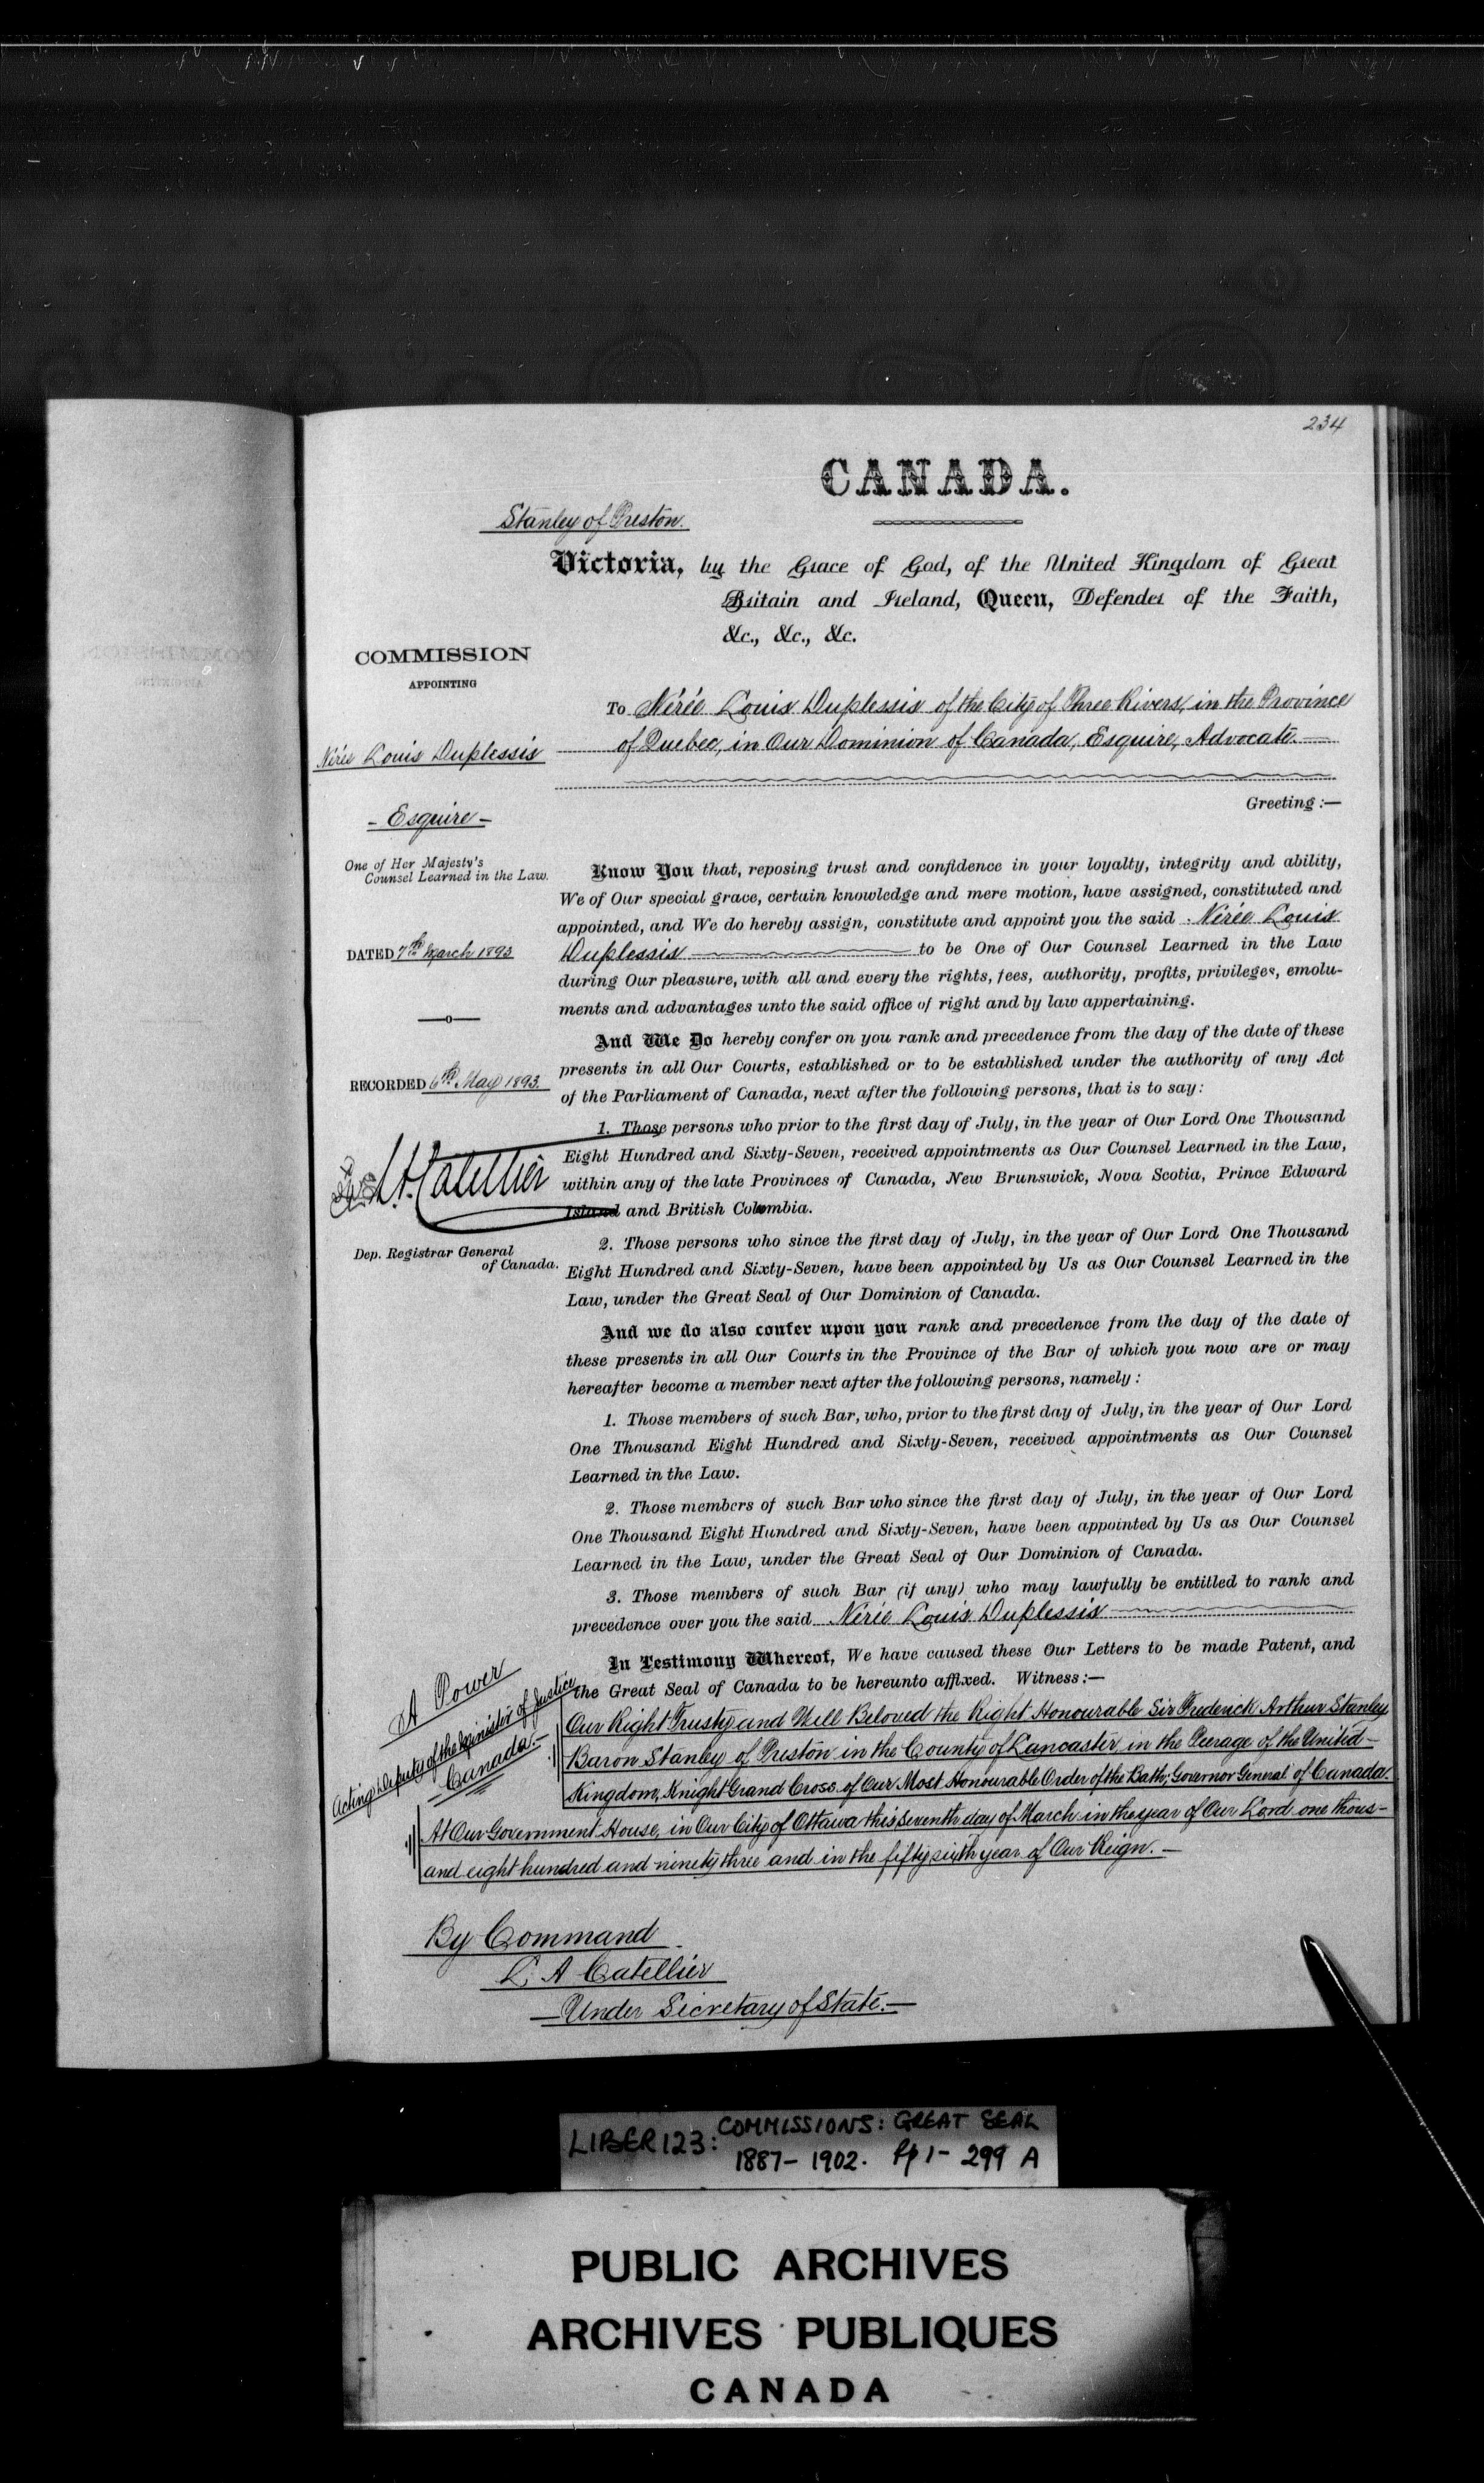 234
CANADA.
Stanley of Preston.
Victoria, by the Grace of God, of the United Kingdom of Great
Britain and Ireland, Queen, Defender of the Faith,
&c., &c., &c.
COMMISSION
APPOINTING
Nérée Louis Duplessis
- Esquire -
One of Her Majesty's
Counsel Learned in the Law.
DATED 7th March 1893
RECORDED 6th May 1893.
L.A. Catellier
Dep. Registrar General
of Canada.
To Nérée Louis Duplessis of the City of Three Rivers, in the Province
of Quebec, in Our Dominion of Canada, Esquire, Advocate.—
Greeting:—
Know You that, reposing trust and confidence in your loyalty, integrity and ability,
We of Our special grace, certain knowledge and mere motion, have assigned, constituted and
appointed, and We do hereby assign, constitute and appoint you the said Nérée Louis
Duplessis to be One of Our Counsel Learned in the Law
during Our pleasure, with all and every the rights, fees, authority, profits, privileges, emolu-
ments and advantages unto the said office of right and by law appertaining.
And We Do hereby confer on you rank and precedence from the day of the date of these
presents in all Our Courts, established or to be established under the authority of any Act
of the Parliament of Canada, next after the following persons, that is to say:
1. Those persons who prior to the first day of July, in the year of Our Lord One Thousand
Eight Hundred and Sixty-Seven, received appointments as Our Counsel Learned in the Law,
within any of the late Provinces of Canada, New Brunswick, Nova Scotia, Prince Edward
Island and British Columbia.
2. Those persons who since the first day of July, in the year of Our Lord One Thousand
Eight Hundred and Sixty-Seven, have been appointed by Us as Our Counsel Learned in the
Law, under the Great Seal of Our Dominion of Canada.
And we do also confer upon you rank and precedence from the day of the date of
these presents in all Our Courts in the Province of the Bar of which you now are or may
hereafter become a member next after the following persons, namely:
1. Those members of such Bar, who, prior to the first day of July, in the year of Our Lord
One Thousand Eight Hundred and Sixty-Seven, received appointments as Our Counsel
Learned in the Law.
2. Those members of such Bar who since the first day of July, in the year of Our Lord
One Thousand Eight Hundred and Sixty-Seven, have been appointed by Us as Our Counsel
Learned in the Law, under the Great Seal of Our Dominion of Canada.
3. Those members of such Bar (if any) who may lawfully be entitled to rank and
precedence over you the said Nérée Louis Duplessis
In Testimony Whereof, We have caused these Our Letters to be made Patent, and
the Great Seal of Canada to be hereunto affixed. Witness:—
A Power
Acting Deputy of the Minister of Justice
Canada.—
Our Right Trusty and Well Beloved the Right Honourable Sir Frederick Arthur Stanley,
Baron Stanley of Preston in the County of Lancaster, in the Peerage of the United-
Kingdom, Knight Grand Cross of Our Most Honourable Order of the Bath; Governor General of Canada.
At Our Government House, in Our City of Ottawa this seventh day of March in the year of Our Lord one thous-
and eight hundred and ninety three and in the fifty sixth year of Our Reign.—
By Command
L. A Catellier
—Under Secretary of State.—
LIBER 123: COMMISSIONS: GREAT SEAL
1887-1902. pp 1-299 A
PUBLIC ARCHIVES
ARCHIVES PUBLIQUES
CANADA